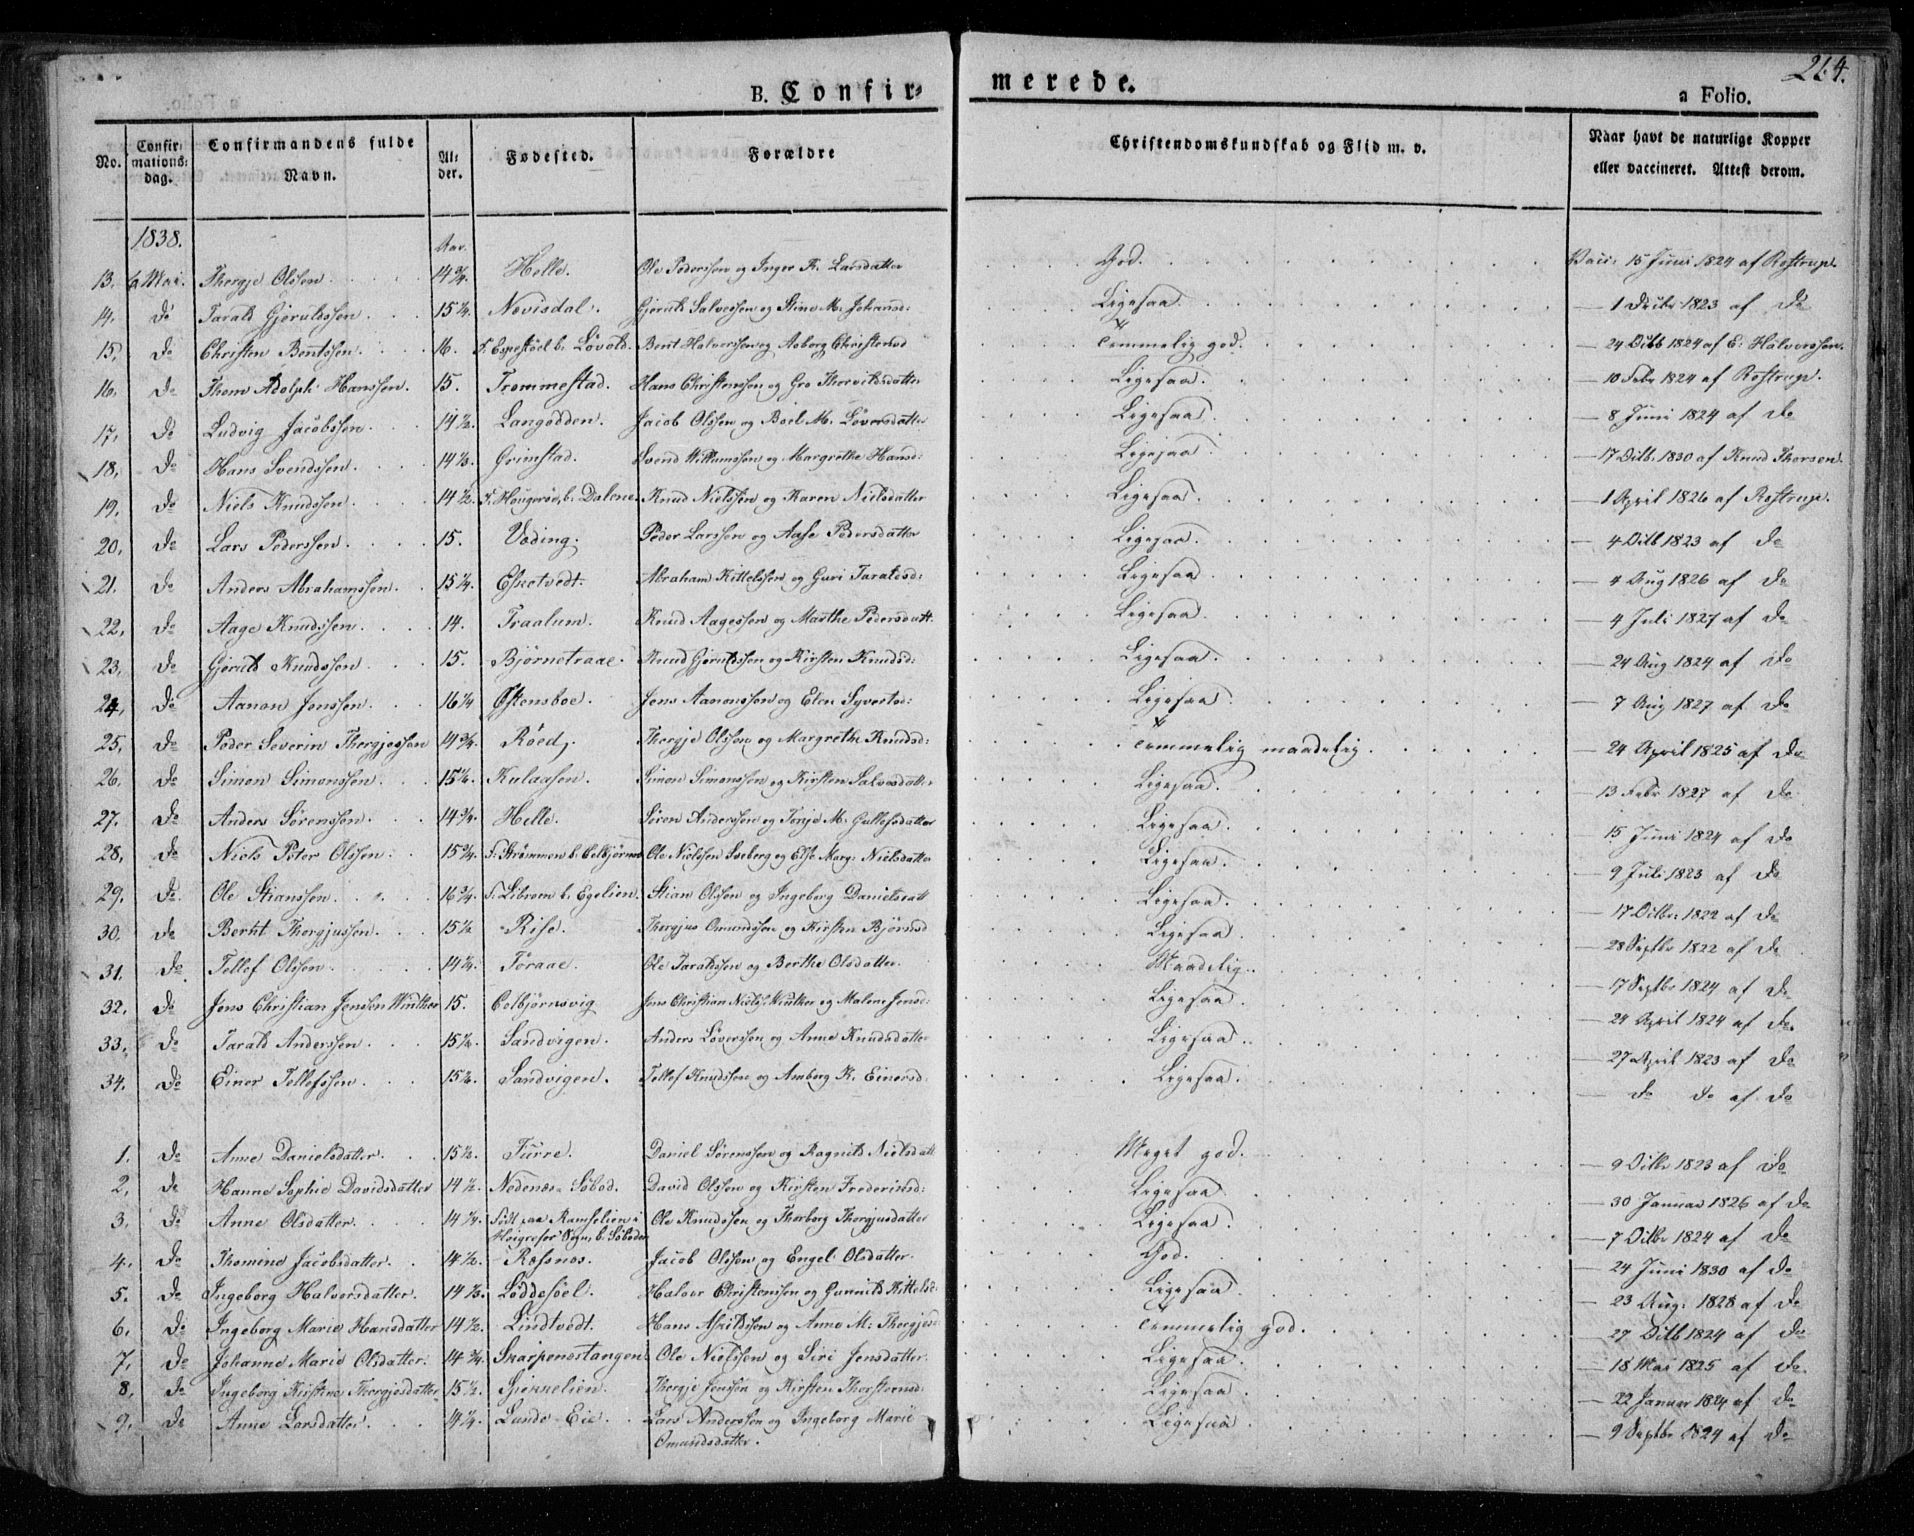 214.
B. Confirmerede.
a Folio.
No. Confirmations-dag. Confirmandens fulde Navn. Alder. Fødested. Forældre Christendomskundskab og Flid m. v. Naar havt de naturlige Kopper eller vaccineret. Attest derom.
1838. Aar.
13. 6 Mai. Thergje Olssen. 14 3/4. Helle. Ole Pederssen og Inger K. Larsdatter God. Vacc: 15 Juni 1824 af Rostrup.
14. do Tarald Gjeruldssen. 15 1/4. Nevisdal. Gjeruld Salvessen og Stine M. Johansd: Ligesaa. — 1 Decbr 1823 af do
15. do Christen Bentssen. 16. F. Espestøel b. Løvold. Bent Halverssen og Aaborg Christensd Temmelig god. — 24 Dcbb 1824 af E: Halverssen.
16. do Thom Adolph Hanssen. 15. Trommestad. Hans Christenssen og Gro Thorvildsdatter Ligesaa. — 10 Febr 1824 af Rostrup.
17. do Ludvig Jacobssen. 14 1/2. Langodden. Jacob Olssen og Boel M. Løversdatter Ligesaa. — 8 Juni 1824 af do
18. do Hans Svendssen. Grimstad. Svend Willumssen og Margrethe Hansd: Ligesaa. — 17 Dcbr 1830 af Knud Thorsen.
19. do Niels Knudssen. 14 1/2. b. Dalene. Knud Nielssen og Karen Nielsdatter Ligesaa. — 1 April 1826 af Rostrup.
20. do Lars Pederssen. 15. Væding. Peder Larssen og Aase Pedersdatter Ligesaa. — 4 Dcbb 1823 af do
21. do Anders Abrahamssen. 15 1/4. Esketvedt. Abraham Kittelssen og Guri Taraldsd: Ligesaa — 4 Aug 1826 af do
22. do Aage Knudssen. 14. Traalum. Knud Aagessen og Marthe Pedersdatt. Ligesaa — 4 Juli 1827 af do
23. do Gjeruld Knudssen. 15. Bjørnetraae. Knud Gjeruldssen og Kirsten Knudsd: Ligesaa. — 24 Aug 1824 af do
24. do Aanon Jenssen. 16 1/4 Østensboe. Jens Aanonssen og Elen Syvertsd: Ligesaa. — 7 Aug 1827 af do
25. do Peder Severin Thergjessen 14 3/4. Røed, Thergje Olssen og Margrethe Knudsd: Temmelig maadelig. — 24 April 1825 af do
26. do Simon Simonssen. 15 1/2. Kulaasen. Simon Simonssen og Kirsten Salvesdatter Ligesaa. — 13 Febr 1827 af do
27. do Anders Sørenssen. 14 3/4. Helle. Søren Anderssen og Terje M. Gullefsdatter Ligesaa. — 15 Juni 1824 af do
28. do Niels Peter Olssen. 15 3/4. F. Strømmen b. Colbjørnsv Ole Nielssen og Else Marg: Nielsdatter Ligesaa. — 9 Juli 1823 af do
29. do Ole Stianssen. 16 3/4. b. Egelien. Stian Olssen og Ingeborg Danielsdatt Ligesaa. — 17 Dcbr 1822 af do
30. do Bernt Thergjussen. 15 1/2 Rise. Thergjus Omundssen og Kirsten Bjørnsd Ligesaa. — 28 Septbr 1822 af do
31. do Tellef Olssen. 14 1/4. Toraae. Ole Taraldssen og Berthe Olsdatter. Maadelig. — 17 Septbr 1824 af do
32. do Jens Christian Jenssen Winther 15. Colbjørnsvig Jens Christian Niels. Winther og Malene Jensd: Ligesaa. — 24 April 1824 af do
33. do Tarald Anderssen. 15 1/2. Sandvigen. Anders Løverssen og Anne Knudsdatter Ligesaa. — 27 April 1823 af do
34. do Einer Tellefssen. 15 1/2. Sandvigen. Tellef Knudssen og Amborg K. Einersd: Ligesaa. — do do af do
1. do Anne Danielsdatter. 15 1/2. Furre. Daniel Sørenssen og Ragnild Nielsdatt Meget god. — 9 Dcbr 1823 af do
2. do Hanne Sophie Davidsdatter 14 1/2. Nedenæs-Søbod. David Olssen og Kirsten Frederiksd: Ligesaa. — 30 Januar 1826 af do
3. do Anne Olsdatter. 14 1/4. Født paa Ramselien i Ole Knudssen og Thorborg Thergjusdatter Ligesaa. — 7 Dcbr 1824 af do
Sogn, b. Søboden
4. do Thomine Jacobsdatter. 14 1/2. Refsnes. Jacob Olssen og Engel Olsdatter. God. — 24 Juni 1830 af do
5. do Ingeborg Halversdatter. Løddesøel. Halvor Christenssen og Gunnild Kittelsd: Ligesaa. — 23 Aug: 1828 af do
6. do Ingeborg Marie Hansdatter 14 1/2. Lindtvedt. Hans og Anne M: Thergjesd Temmelig god. — 27 Dcbb 1824 af do
7. do Johanne Marie Olsdatter. 14 3/4. Skarpenæstangen. Ole Nielssen og Siri Jensdatter. Ligesaa. — 18 Mai 1825 af do.
8. do Ingeborg Kirstine Thergjesdatter 15 1/2. Thergje Jenssen og Kirsten Thorstensd: Ligesaa. — 22 Januar 1824 af do
9. do Anne Larsdatter. 14 1/4. Lunde-Eie. Lars Anderssen og Ingeborg Marie Ligesaa. — 9 Septbr 1824 af do
Omundsdatter.